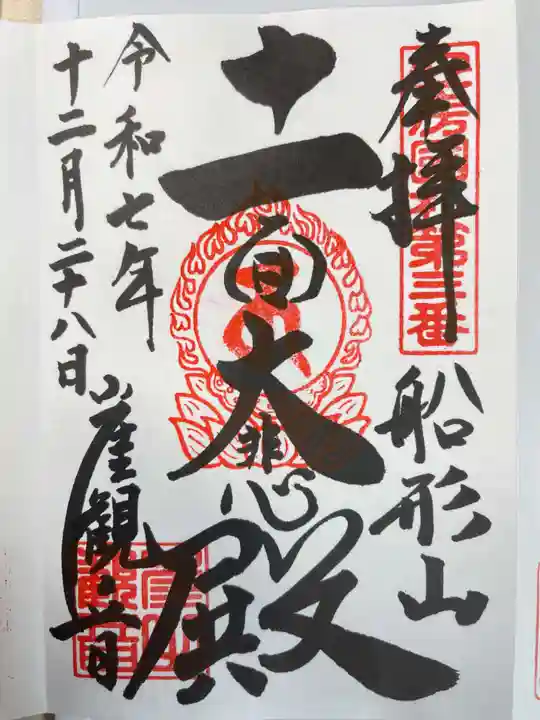 奉拝
船形山
十一面大悲殿
崖観音
令和七年
十二月二十八日